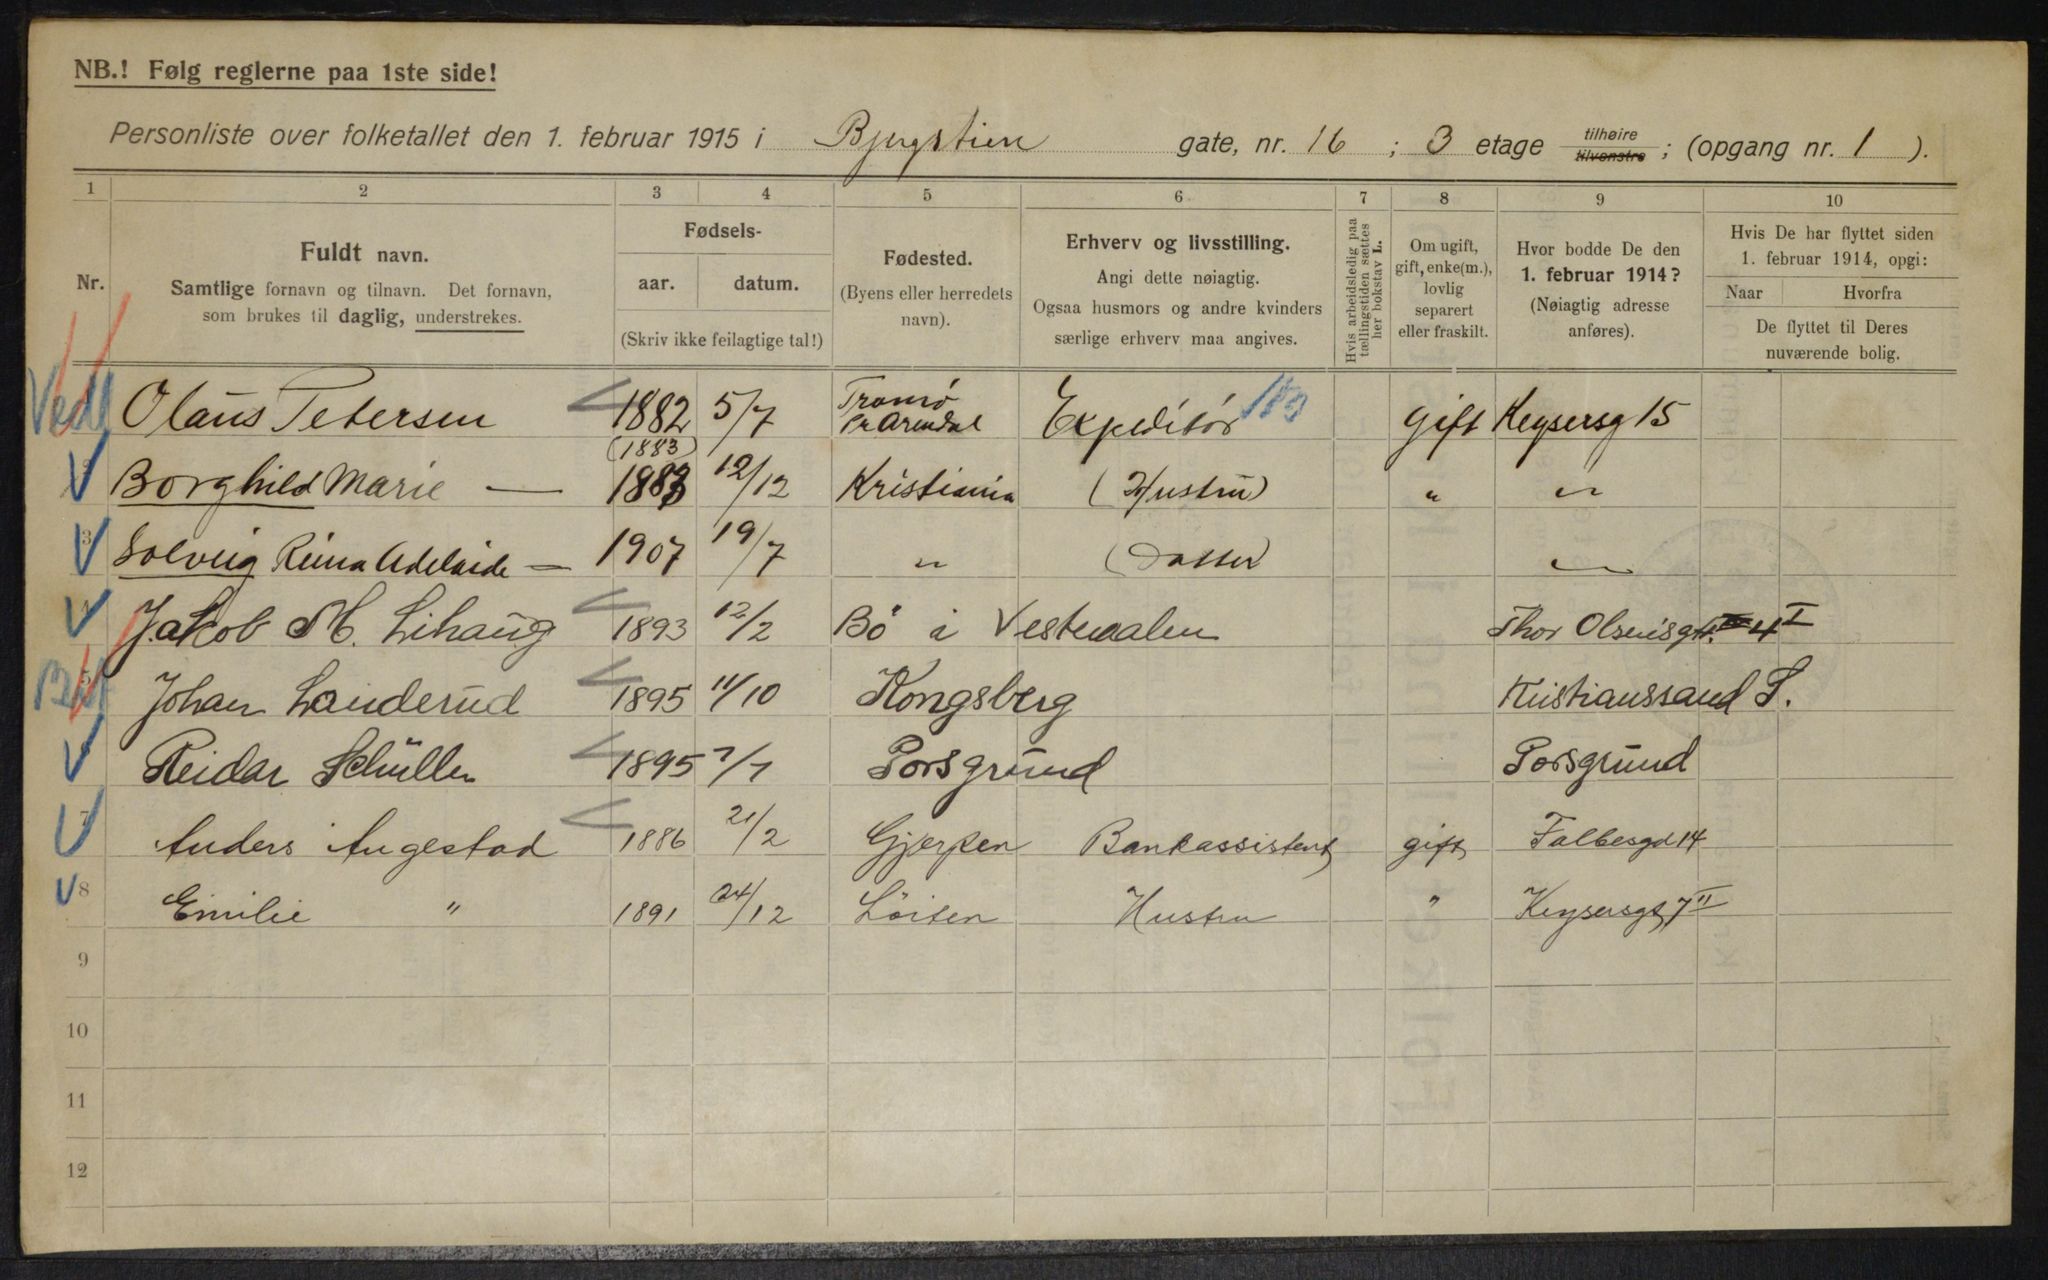 NB.! Følg reglerne paa 1ste side!
Personliste over folketallet den 1. februar 1915 i Bjergstien gate, nr. 16 ; 3 etage tilhøire tilvenstre ; (opgang nr. 1 ).
1 2 3 4 5 6 7 8 9 10
Nr.
Fuldt navn.
Samtlige fornavn og tilnavn. Det fornavn,
som brukes til daglig, understrekes.
Fødsels-
aar. datum.
(Skriv ikke feilagtige tal!)
Fødested.
(Byens eller herredets
navn).
Erhverv og livsstilling.
Angi dette nøiagtig.
Ogsaa husmors og andre kvinders
særlige erhverv maa angives.
Hvis arbeidsledig paa
tællingstiden sættes
her bokstav L.
Om ugift,
gift, enke(m.),
lovlig
separert
eller fraskilt.
Hvor bodde De den
1. februar 1914?
(Nøiagtig adresse
anføres).
Hvis De har flyttet siden
1. februar 1914, opgi:
Naar Hvorfra
De flyttet til Deres
nuværende bolig.
Olaus Petersen 1882 5/7 Tromø pr Arendal Expeditør gift Keysersg 15
(1883)
2 Borghild Marie — 1883 12/12 Kristiania (Hustru) " "
3 Solveig Reina Adelaide — 1907 19/7 " (Datter) "
4 Jakob M. Lihaug 1893 12/2 Bö i Vesteraalen Thor Olsensgt. 4 I
5 Johan Landerud 1895 11/10 Kongsberg Kristianssand S.
6 Reidar Schüller 1895 7/1 Porsgrund Porsgrund
7 Anders Augestad 1886 21/2 Gjerpen Bankassistent gift Falbesgd 14
8 Emilie " 1891 24/12 Löiten Hustru " Keysersgt 7 II
9
10
11
12